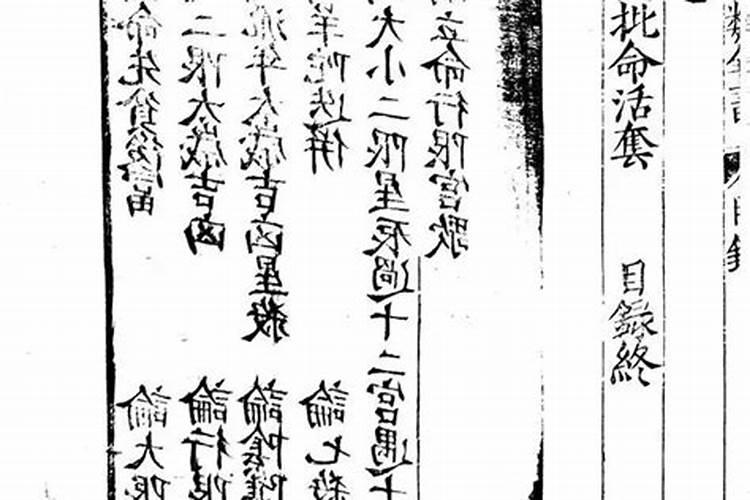 數全書 目錄
批命活套 目錄終
立命行限宮歌
大小二限星辰過十二宮遇十
羊陀迭併 論七殺
流年太歲吉凶星殺 論陰
二限太歲吉凶 論行限
命先貧後富 論大限